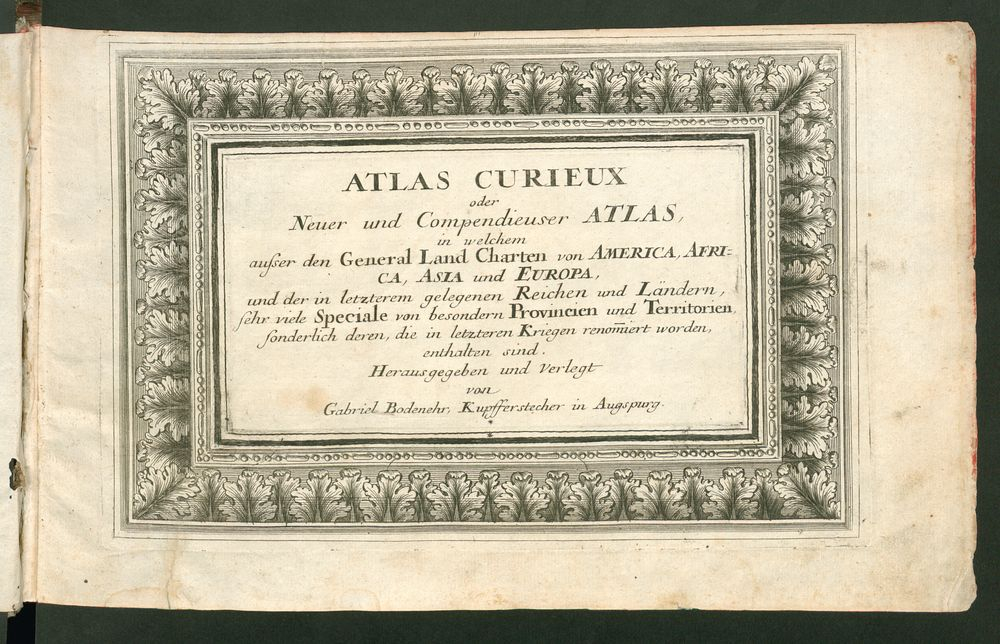 ATLAS CURIEUX
oder
Neuer und Compendieuser ATLAS,
in welchem
ausser den General Land Charten von AMERICA, AFRI-
CA, ASIA und EUROPA,
und der in letzterem gelegenen Reichen und Ländern,
sehr viele Speciale von besondern Provincien und Territorien,
sonderlich deren, die in letzteren Kriegen renom̄iert worden,
enthalten sind.
Herausgegeben und Verlegt
von
Gabriel Bodenehr, Kupfferstecher in Augspurg.